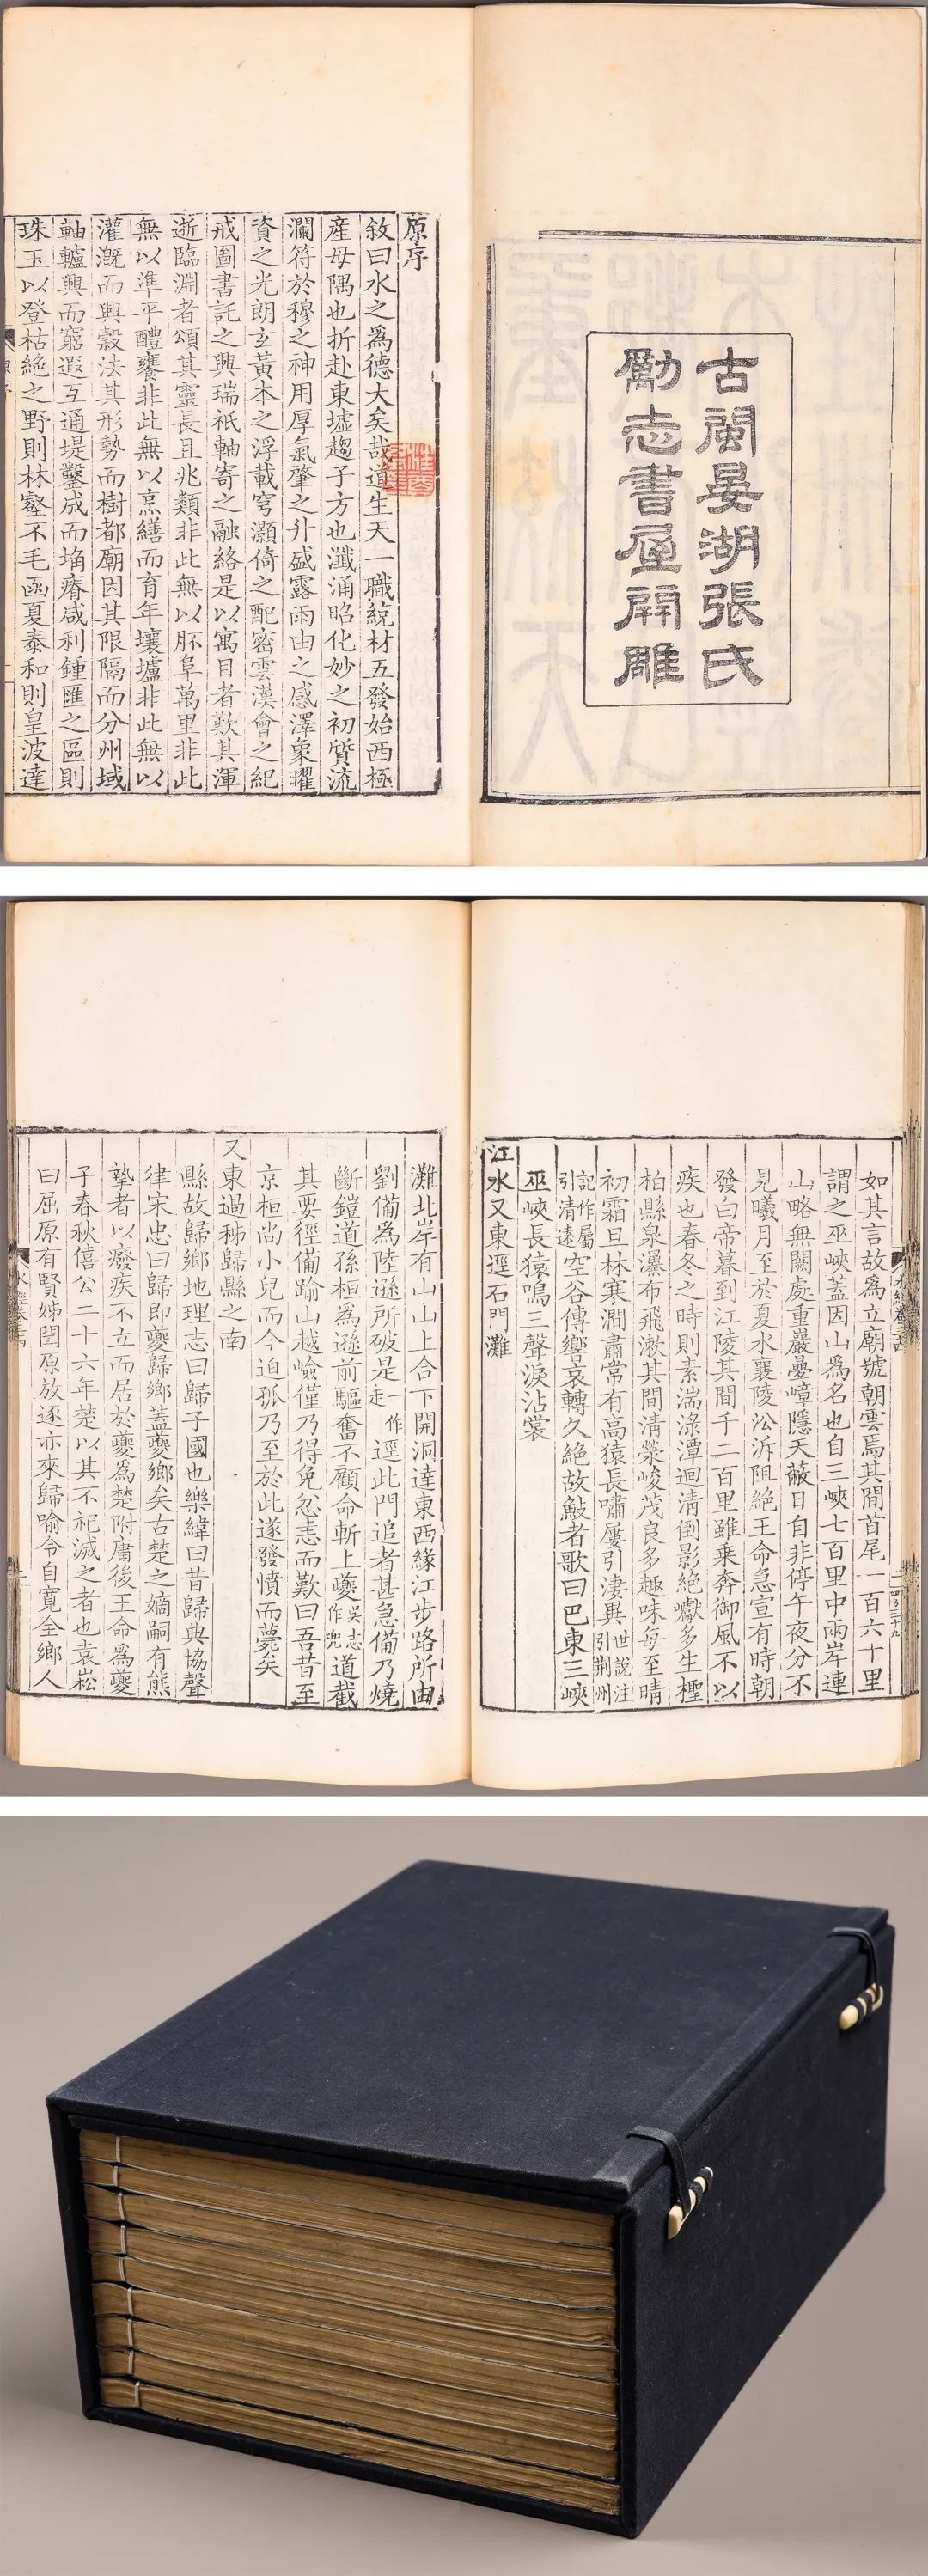 古閩晏湖張氏
勵志書屋開雕
原序
敘曰水之爲德大矣哉道生天一職統材五發始西極
産母隅也折赴東墟趨子方也瀸涌昭化妙之初質流
瀾符於穆之神用厚氣肇之升盛露雨由之感澤象曜
資之光朗玄黃本之浮載穹灝倚之配密雲漢會之紀
戒圖書託之興瑞祇軸寄之融絡是以寓目者歎其渾
逝臨淵者頌其靈長且兆類非此無以胚阜萬里非此
無以準平醴饔非此無以烹繕而育年壤壚非此無以
灌漑而興穀法其形勢而樹都廟因其限隔而分州域
軸轤興而窮遐互通堤鑿成而埆瘠咸利鍾匯之區則
珠玉以登枯絶之野則林壑不毛函夏泰和則皇波達
如其言故爲立廟號朝雲焉其間首尾一百六十里
謂之巫峽蓋因山爲名也自三峽七百里中兩岸連
山略無闕處重巖疊嶂隱天蔽日自非停午夜分不
見曦月至於夏水襄陵沿泝阻絶王命急宣有時朝
發白帝暮到江陵其間千二百里雖乘奔御風不以
疾也春冬之時則素湍淥潭迴清倒影絶巘多生檉
柏縣泉瀑布飛漱其間淸榮峻茂良多趣味每至晴
初霜旦林寒澗肅常有高猿長嘯屢引淒異世說注引荆州
記作屬引淸遠空谷傳響哀轉久絶故鼓者歌曰巴東三峽
巫峽長猿鳴三聲淚沾裳
江水又東逕石門灘
灘北岸有山山上合下開洞達東西緣江步路所由
劉備爲陸遜所破是一作走逕此門追者甚急備乃燒
斷鎧道孫桓爲遜前驅奮不顧命斬上夔吳志作兜道截
其要徑備踰山越嶮僅乃得免忿恚而歎曰吾昔至
京桓尚小兒而今迫孤乃至於此遂發憤而薨矣
又東過秭歸縣之南
縣故歸鄉地理志曰歸子國也樂緯曰昔歸典協聲
律宋忠曰歸即夔歸鄉蓋夔鄉矣古楚之嫡嗣有熊
摯者以癈疾不立而居於夔爲楚附庸後王命爲夔
子春秋僖公二十六年楚以其不祀滅之者也袁崧
曰屈原有賢姊聞原放逐亦來歸喻令自寬全鄉人